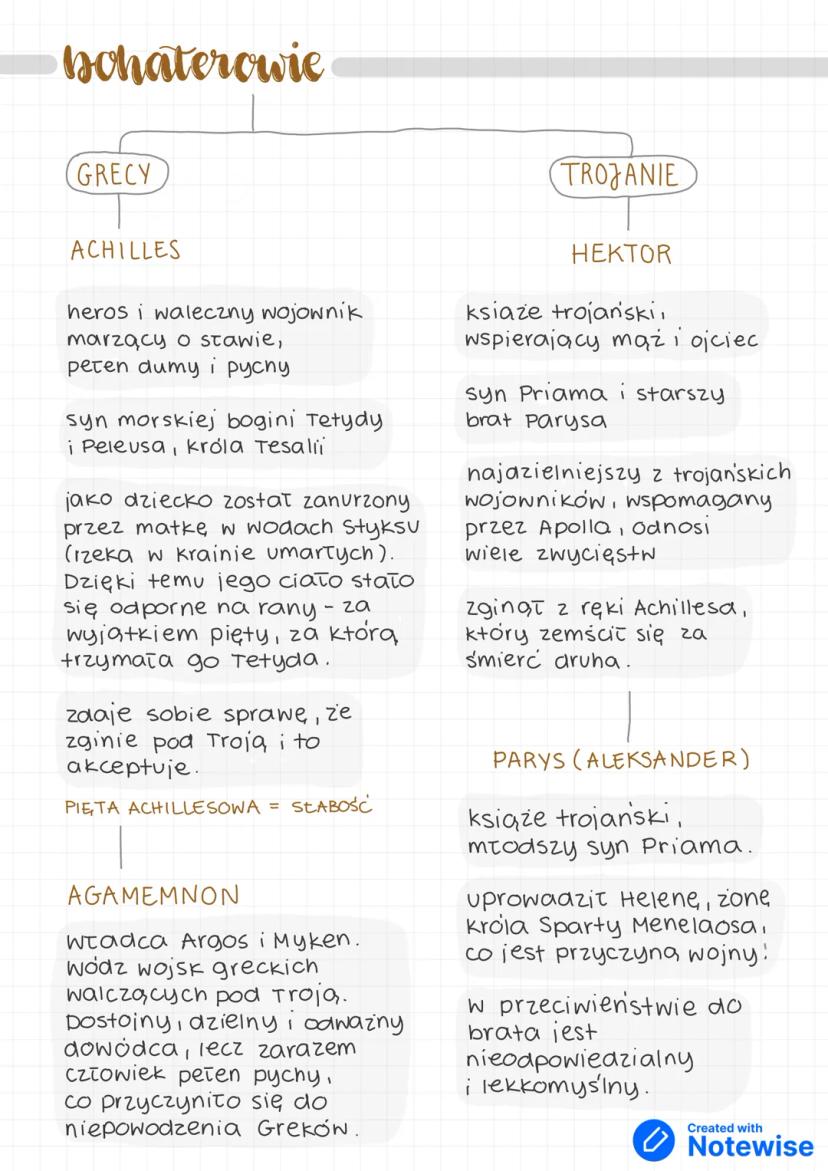 bohaterowie
GRECY
ACHILLES
heros i waleczny wojownik
marzący o sławie,
pełen dumy i pychy
syn morskiej bogini Tetydy
i Peleusa, króla Tesalii
jako dziecko został zanurzony
przez matkę w wodach Styksu
(rzeka w krainie umarłych).
Dzięki temu jego ciało stało
się odporne na rany - za
wyjątkiem pięty, za którą
trzymała go Tetyda.
zdaje sobie sprawę, że
zginie pod Troją i to
akceptuje.
PIĘTA ACHILLESOWA = SŁABOŚĆ
AGAMEMNON
władca Argos i Myken.
wódz wojsk greckich
walczących pod Troją.
Dostojny, dzielny i odważny
dowódca, lecz zarazem
człowiek pełen pychy,
co przyczyniło się do
niepowodzenia Greków.
TROJANIE
HEKTOR
książe trojański,
wspierający mąż i ojciec
syn Priama i starszy
brat Parysa
najdzielniejszy z trojańskich
wojowników, wspomagany
przez Apolla, odnosi
wiele zwycięstw
zginął z ręki Achillesa,
który zemścił się za
śmierć druha.
PARYS (ALEKSANDER)
książe trojański,
młodszy syn Priama.
uprowadził Helenę, żonę
króla Sparty Menelaosa,
co jest przyczyną wojny!
w przeciwieństwie do
brata jest
nieodpowiedzialny
i lekkomyślny.
Created with
Notewise